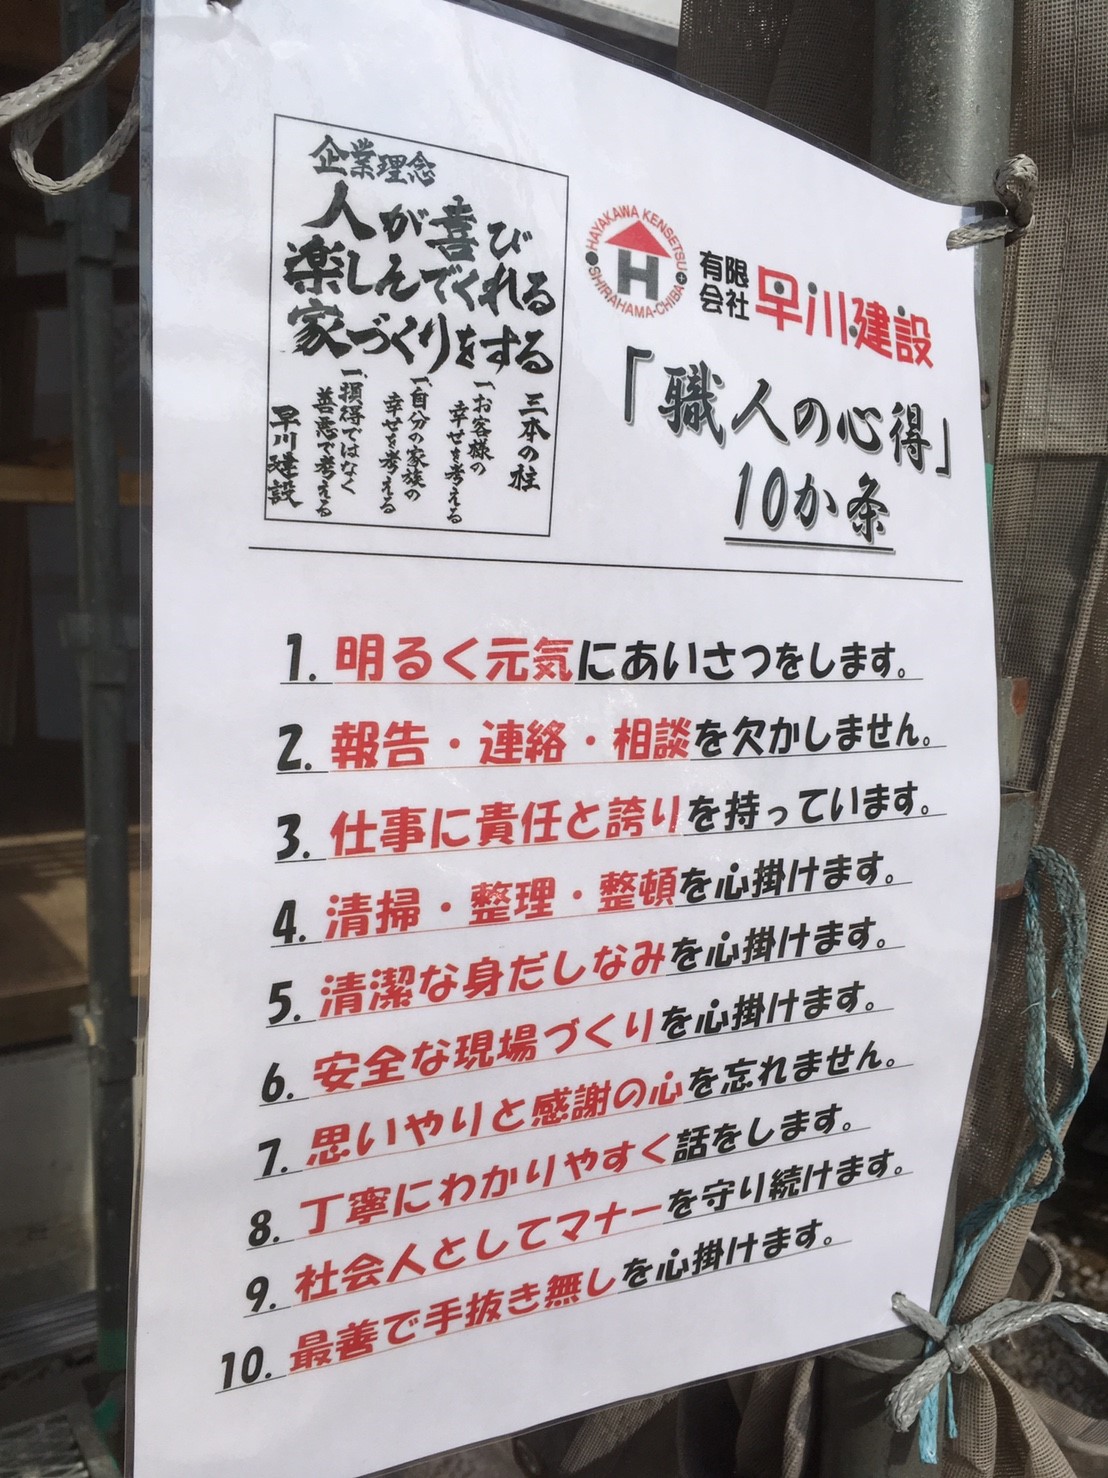 企業理念
人が喜び
楽しんでくれる
家づくりをする
三本の柱
一、お客様の
幸せを考える
一、自分の家族の
幸せを考える
一、損得ではなく
善悪で考える
早川建設
HAYAKAWA KENSETSU
SHIRAHAMA-CHIBA
H
有限会社 早川建設
「職人の心得」
10か条
1. 明るく元気にあいさつをします。
2. 報告・連絡・相談を欠かしません。
3. 仕事に責任と誇りを持っています。
4. 清掃・整理・整頓を心掛けます。
5. 清潔な身だしなみを心掛けます。
6. 安全な現場づくりを心掛けます。
7. 思いやりと感謝の心を忘れません。
8. 丁寧にわかりやすく話をします。
9. 社会人としてマナーを守り続けます。
10. 最善で手抜き無しを心掛けます。